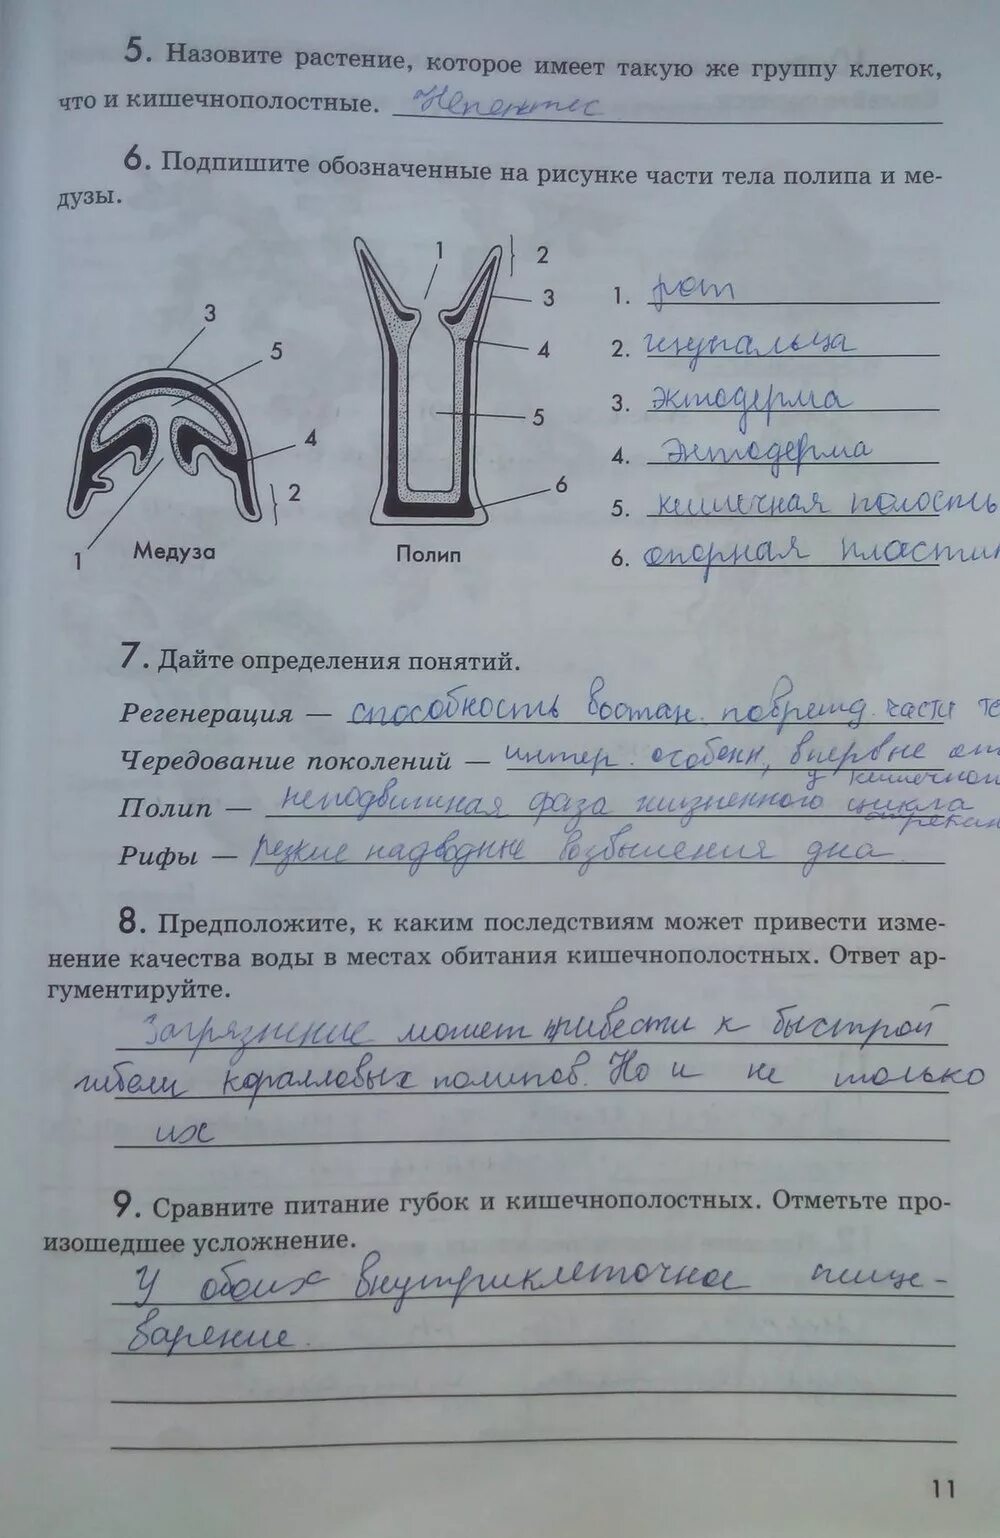 5. Назовите растение, которое имеет такую же группу клеток,
что и кишечнополостные. Непентес
6. Подпишите обозначенные на рисунке части тела полипа и ме-
дузы.
1
2
3
4
5
6
Полип
3
5
4
2
1
Медуза
1. рот
2. щупальца
3. эктодерма
4. энтодерма
5. кишечная полость
6. опорная пластин
7. Дайте определения понятий.
Регенерация — способность востан. поврежд. части те
Чередование поколений — интер. особенн, впервые от
у кишечнопол
Полип — неподвижная фаза жизненного цикла
Рифы — резкие надводные возвышения дна
8. Предположите, к каким последствиям может привести изме-
нение качества воды в местах обитания кишечнополостных. Ответ ар-
гументируйте.
Загрязнение может привести к быстрой
гибели коралловых полипов. Но и не только
их
9. Сравните питание губок и кишечнополостных. Отметьте про-
изошедшее усложнение.
У обоих внутриклеточное пище-
варение.
11